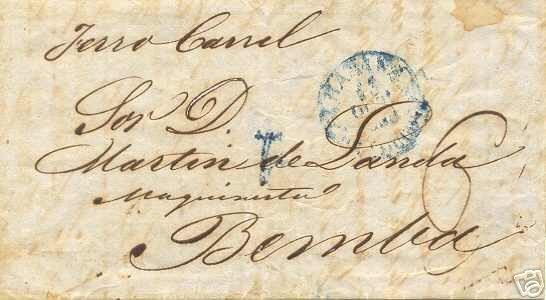 Ferro Carril
Sor D.
Martin de Landa
Maquinista
Bemba